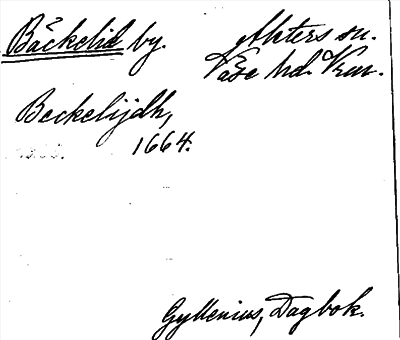 Bäckelid by. Alsters sn.
Väse hd. Vrm.
Beckelijdh,
1664.
Gyllenius, Dagbok.